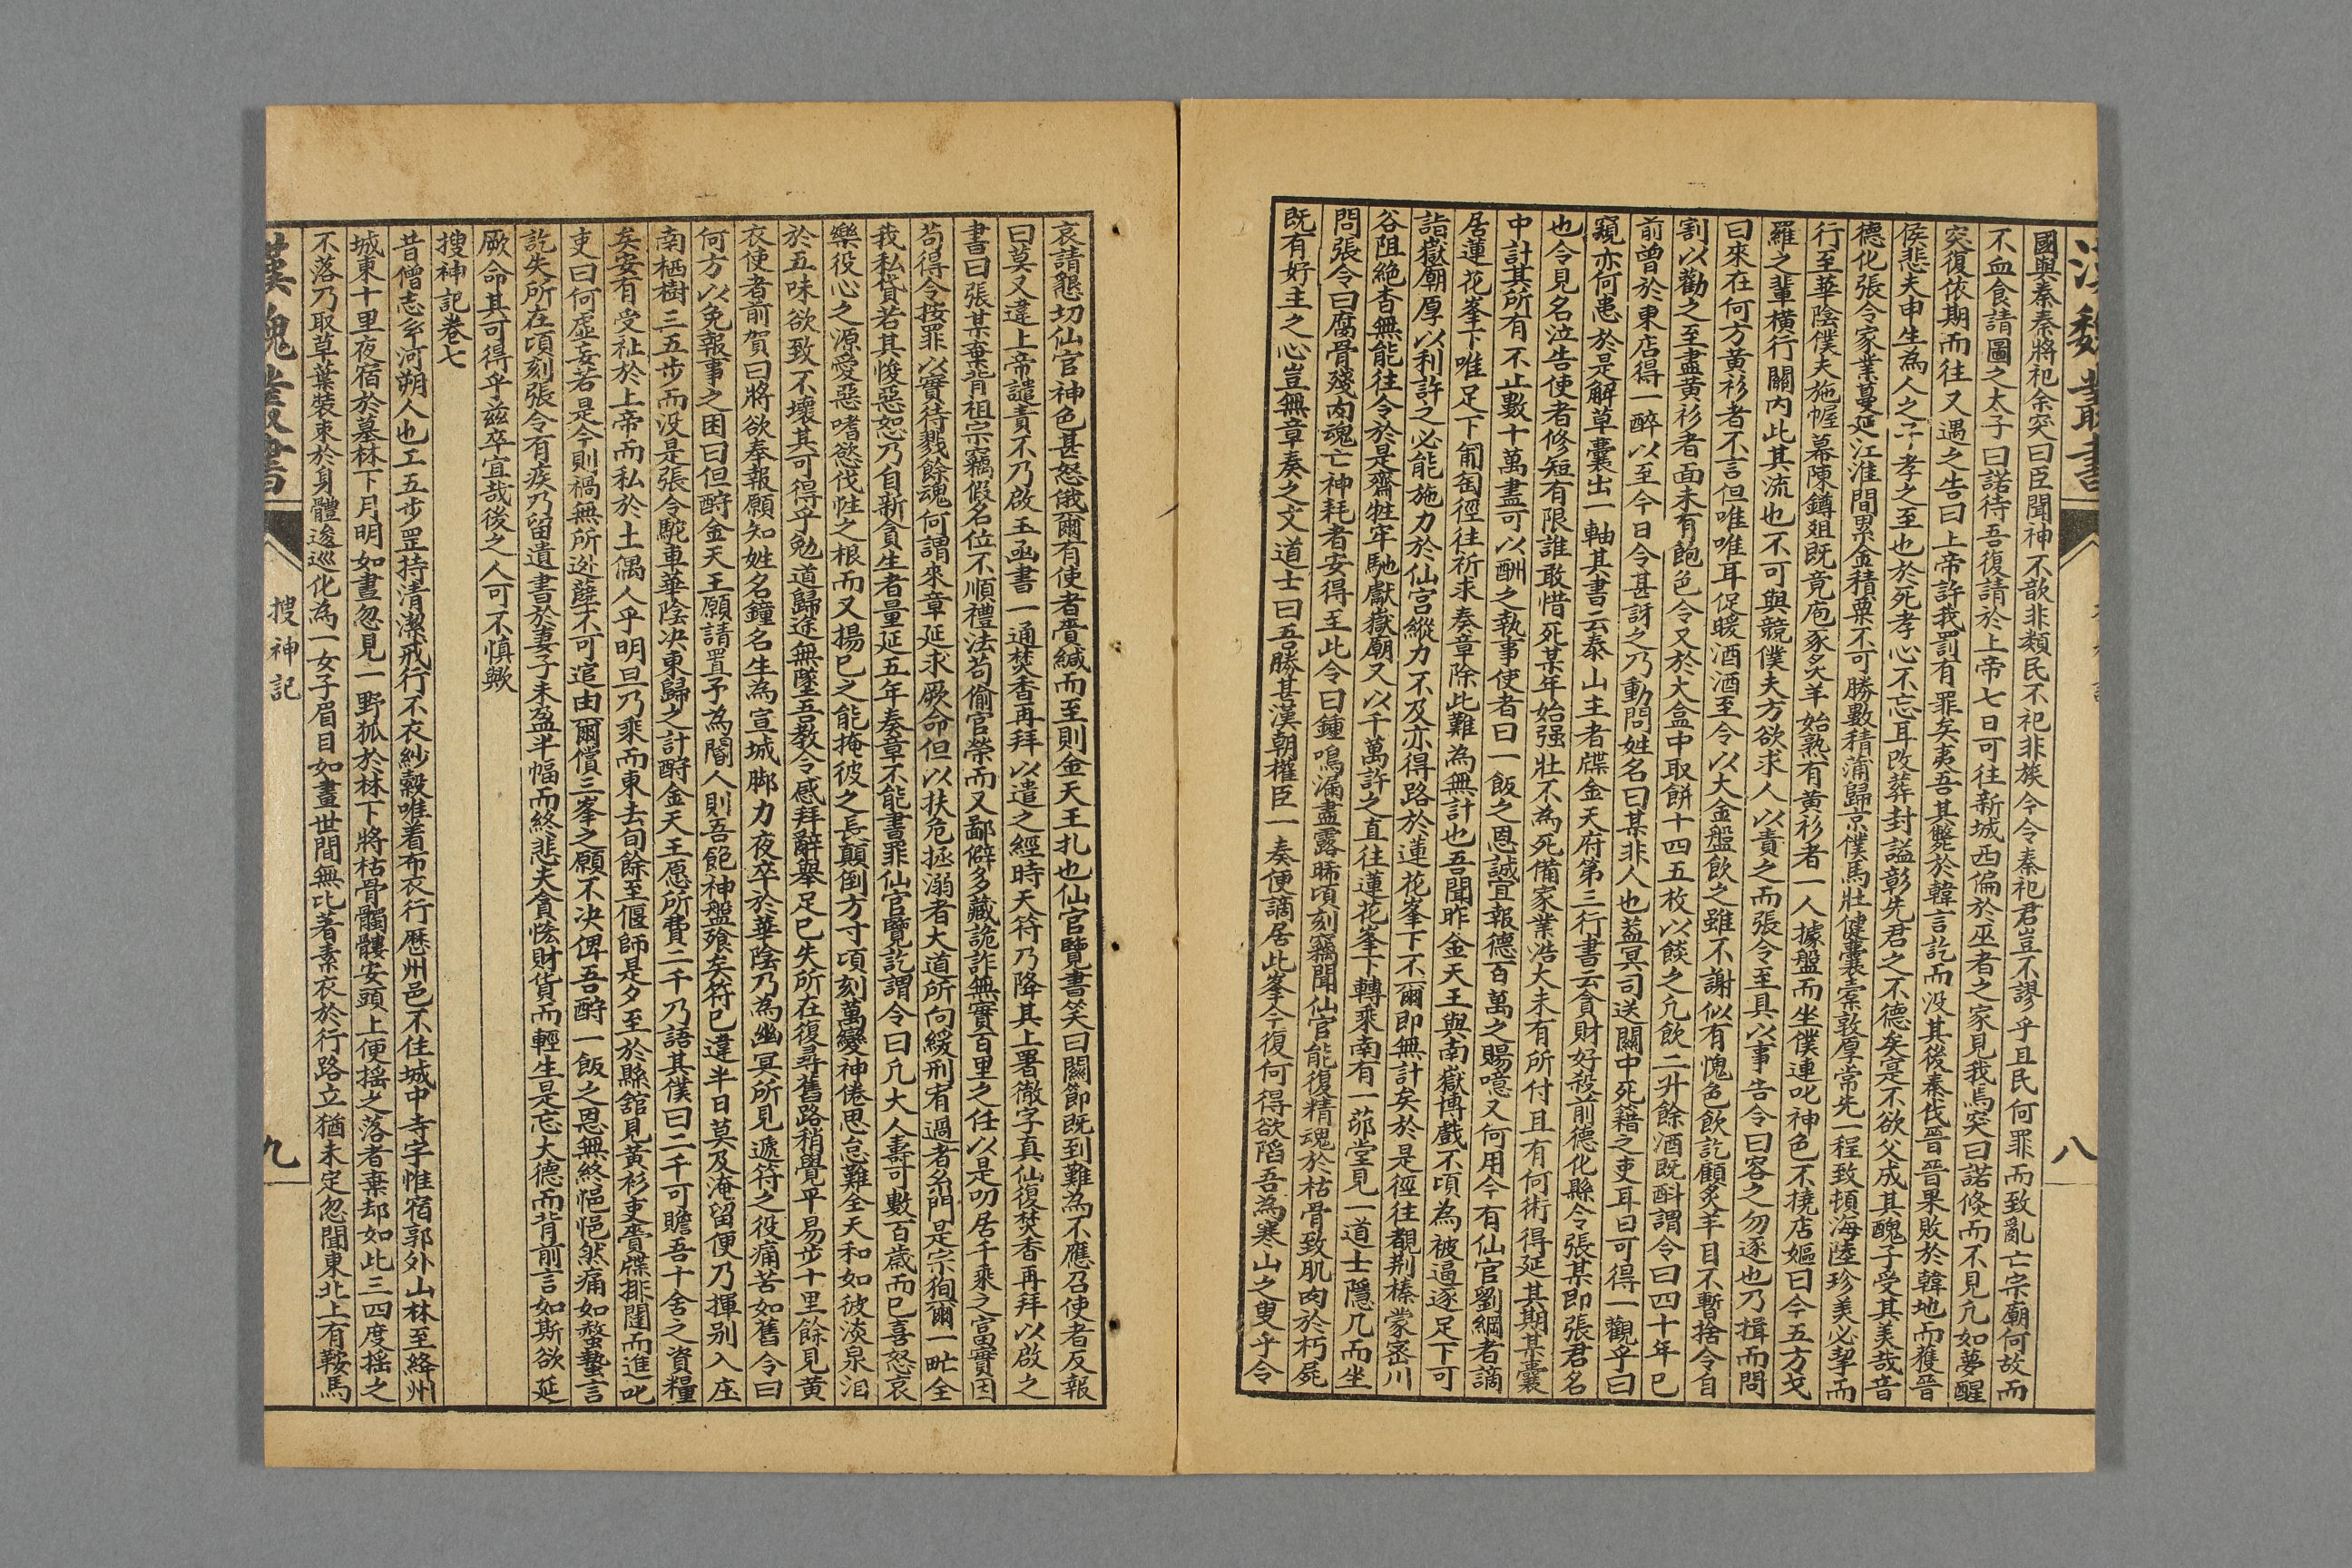 國與秦秦將祀余突曰臣聞神不歆非類民不祀非族今令秦祀君豈不謬乎且民何罪而致亂亡宗廟何故而
不血食請圖之太子曰諾待吾復請於上帝七日可往新城西偏於巫者之家見我焉突曰諾倐而不見凢如夢醒
突復依期而往又遇之告曰上帝許我罰有罪矣夷吾其斃於韓言訖而没其後秦伐晉晉果敗於韓地而獲晉
侯悲夫申生為人之子孝之至也於死孝心不忘耳改葬封謚彰先君之不德矣寔不欲父成其醜子受其美哉昔
德化張令家業蔓延江淮間累金積粟不可勝數秩滿歸京僕馬壯健囊橐敦厚常先一程致頓海陸珍美必挈而
行至華陰僕夫施幄幕陳鐏俎既竟庖豕炙羊始熟有黄衫者一人據盤而坐僕連叱神色不撓店嫗曰今五方弋
羅之輩横行關内此其流也不可與競僕夫方欲求人以責之而張令至具以事告令曰容之勿逐也乃揖而問
曰來在何方黄衫者不言但唯唯耳促暖酒酒至令以大金盤飲之雖不謝似有愧色飲訖顧炙羊目不暫捨令自
割以勸之至盡黄衫者面未有飽色令又於大盒中取餅十四五枚以餤之凢飲二升餘酒既酣謂令曰四十年已
前曾於東店得一醉以至今日令甚訝之乃動問姓名曰某非人也葢冥司送關中死籍之吏耳曰可得一觀乎曰
窺亦何患於是解草囊出一軸其書云泰山主者牒金天府第三行書云貪財好殺前德化縣令張某即張君名
也令見名泣告使者修短有限誰敢惜死某年始强壯不為死備家業浩大未有所付且有何術得延其期某囊
中計其所有不止數十萬盡可以酬之執事使者曰一飯之恩誠宜報德百萬之賜噫又何用今有仙官劉綱者謫
居蓮花峯下唯足下匍匐徑往祈求奏章除此難為無計也吾聞昨金天王與南嶽博戲不頃為被逼逐足下可
詣嶽廟厚以利許之必能施力於仙宫縱力不及亦得路於蓮花峯下不爾即無計矣於是徑往覩荆榛蒙密川
谷阻絶杳無能往令於是齋牲牢馳獻嶽廟又以千萬許之直往蓮花峯下轉乘南有一茆堂見一道士隱几而坐
問張令曰腐骨殘肉魂亡神耗者安得至此令曰鍾鳴漏盡露晞頃刻竊聞仙官能復精魂於枯骨致肌肉於朽屍
既有好主之心豈無章奏之文道士曰吾勝甚漢朝權臣一奏便謫居此峯今復何得欲陷吾為寒山之叟乎令
八
哀請懇切仙官神色甚怒俄爾有使者賫緘而至則金天王扎也仙官覽書笑曰關節既到難為不應召使者反報
曰莫又違上帝譴責不乃啟玉函書一通焚香再拜以遣之經時天符乃降其上署徹字真仙復焚香再拜以啟之
書曰張某棄背祖宗竊假名位不順禮法苟偷官榮而又鄙僻多藏詭詐無實百里之任以是叨居千乘之富實因
苟得令按罪以實待戮餘魂何謂來章延求厥命但以扶危拯溺者大道所向緩刑宥過者名門是宗徇爾一甿全
我私貸若其悛惡恕乃自新貪生者量延五年奏章不能書罪仙官覽訖謂令曰凢大人壽可數百歲而已喜怒哀
樂役心之源愛惡嗜慾伐性之根而又揚已之能掩彼之長顛倒方寸頃刻萬變神倦思怠難全天和如彼淡泉汨
於五味欲致不壞其可得乎勉道歸途無墜吾教令感拜辭舉足已失所在復尋舊路稍覺平易步十里餘見黄
衣使者前賀曰將欲奉報願知姓名鐘名生為宣城脚力夜卒於華陰乃為幽冥所見遞符之役痛苦如舊令曰
何方以免報事之困曰但酹金天王願請置予為閽人則吾飽神盤飱矣符已違半日莫及淹留便乃揮别入庄
南栖樹三五步而没是張令駝車華陰决東歸之計酹金天王愿所費二千乃語其僕曰二千可贍吾十舍之資糧
矣安有受祉於上帝而私於土偶人乎明旦乃乘而東去旬餘至偃師是夕至於縣舘見黄衫吏賫牒排闥而進叱
吏曰何虚妄若是今則禍無所逊孽不可逭由爾償三峯之願不决俾吾酹一飯之恩無終悒悒然痛如螫蟄言
訖失所在頃刻張令有疾乃留遺書於妻子未盈半幅而終悲夫貪恡財貨而輕生是忘大德而背前言如斯欲延
厥命其可得乎兹卒宜哉後之人可不慎歟
搜神記卷七
昔僧志玄河朔人也工五步罡持清潔戒行不衣紗縠唯着布衣行歷州邑不住城中寺宇惟宿郭外山林至絳州
城東十里夜宿於墓林下月明如晝忽見一野狐於林下將枯骨髑髏安頭上便摇之落者棄却如此三四度摇之
不落乃取草葉装束於身體逡巡化為一女子眉目如畫世間無比著素衣於行路立猶未定忽聞東北上有鞍馬
漢魏叢書
搜神記
九